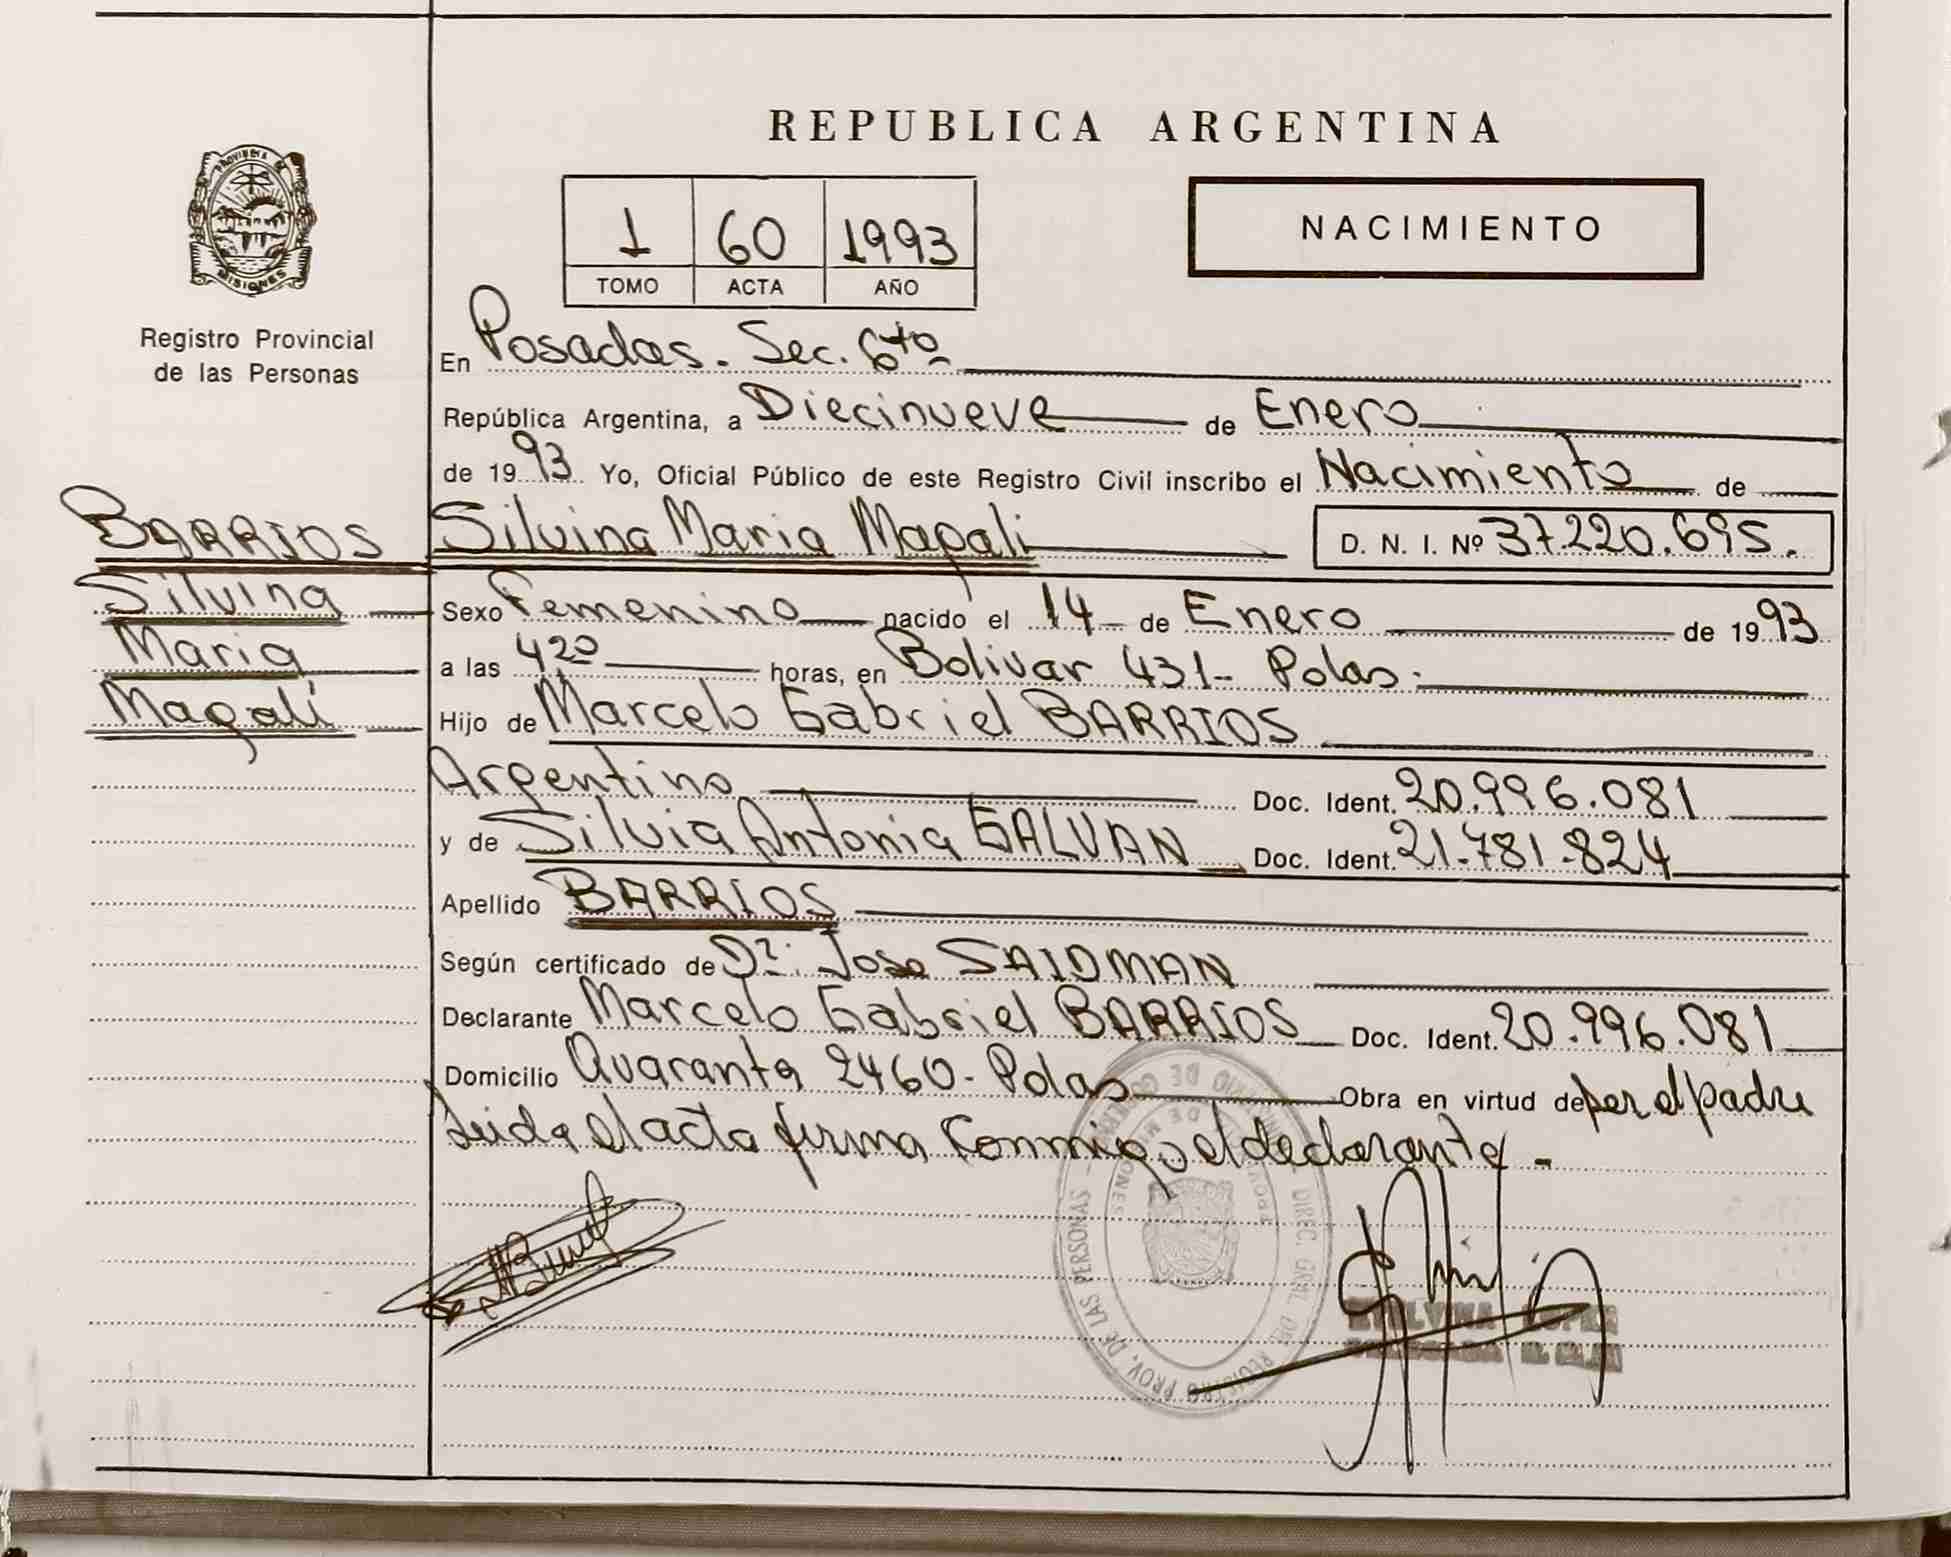 REPUBLICA ARGENTINA
PROVINCIA DE
MISIONES
Registro Provincial
de las Personas
1 60 1993
TOMO ACTA AÑO
NACIMIENTO
En Posadas. Sec. 6to
República Argentina, a Diecinueve de Enero
de 1993 Yo, Oficial Público de este Registro Civil inscribo el Nacimiento de
BARRIOS
Silvina
Maria
Magali
Silvina Maria Magali D. N. I. Nº 37.220.695.
Sexo Femenino nacido el 14 de Enero de 1993
a las 4 20 horas, en Bolivar 431- Pdas.
Hijo de Marcelo Gabriel BARRIOS
Argentino Doc. Ident. 20.996.081
y de Silvia Antonia GALVAN Doc. Ident. 21.781.824
Apellido BARRIOS
Según certificado de Dr. Jose SAIDMAN
Declarante Marcelo Gabriel BARRIOS Doc. Ident. 20.996.081
Domicilio Quaranta 2460- Pdas Obra en virtud de ser el padre
Leida el acta firma conmigo el declarante -
DIREC. GRAL. DEL REGISTRO PROV. DE LAS PERSONAS
LOPEZ